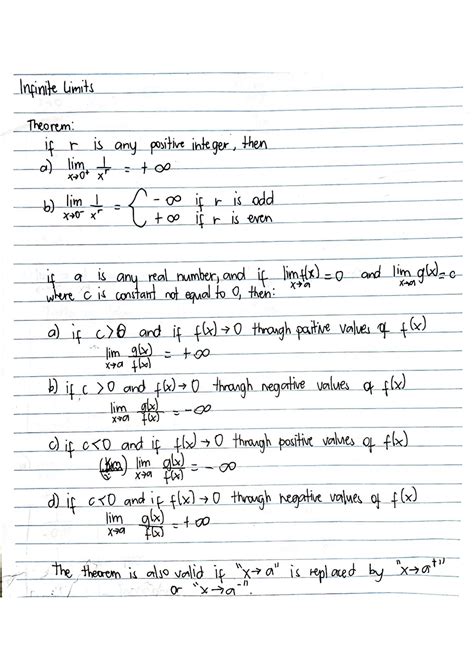 Infinite Limits
Theorem:
if r is any positive integer, then
a) lim x→0⁺ 1/xʳ = +∞
b) lim x→0⁻ 1/xʳ = { -∞ if r is odd
+∞ if r is even
if a is any real number, and if lim x→a f(x) = 0 and lim x→a g(x) = c
where c is constant not equal to 0, then:
a) if c>0 and if f(x)→0 through positive values of f(x)
lim x→a g(x)/f(x) = +∞
b) if c>0 and f(x)→0 through negative values of f(x)
lim x→a g(x)/f(x) = -∞
c) if c<0 and if f(x)→0 through positive values of f(x)
lim x→a g(x)/f(x) = -∞
d) if c<0 and if f(x)→0 through negative values of f(x)
lim x→a g(x)/f(x) = +∞
The theorem is also valid if "x→a" is replaced by "x→a⁺"
or "x→a⁻".